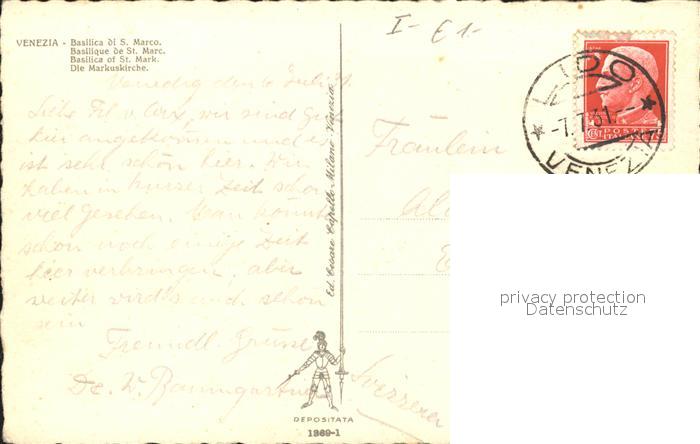 VENEZIA - Basilica di S. Marco.
Basilique de St. Marc.
Basilica of St. Mark.
Die Markuskirche.
I - E 1-
LIDO
-7.7.31.--
VENEZIA
POSTE
ITALIANE
Venedig den 6 Juli 31
Liebe Frl. v. wir sind gut
hier angekommen und es
ist sehr schön hier. Wir
haben in kurzer Zeit schon
viel gesehen. Man könnte
schon noch einige Zeit
hier verbringen, aber
weiter wird's auch schön
sein
Freundl. Grüsse
De. W. Baumgartner
Ed. Cesare Capello Milano - Venezia
DEPOSITATA
1369-1
Fräulein
Svizzera
privacy protection
Datenschutz